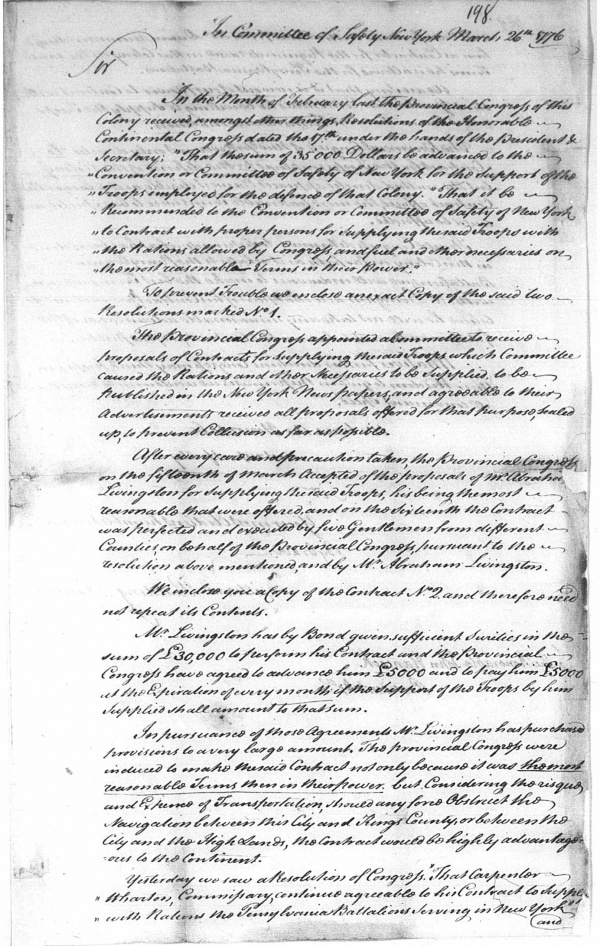 198.
In Committee of Safety New York March 26th 1776
Sir
In the Month of February last The Provincial Congress of this
Colony received, amongst other things, Resolutions of the Honorable
Continental Congress dated the 17th under the hands of the President &
Secretary; "That the sum of 35'000 Dollars be advanced to the
"Convention or Committee of Safety of New York for the Support of the
"Troops employed for the defence of that Colony. "That it be
"Recommended to the Convention or Committee of Safety of New York
"to Contract with proper persons for Supplying the said Troops with
"the Rations allowed by Congress, and fuel and other necessaries on
"the most reasonable Terms in their Power."
To prevent Trouble we enclose an exact Copy of the said two
Resolutions marked No 1.
The Provincial Congress appointed a Committee to receive
proposals of Contracts for Supplying the said Troops which Committee
caused the Rations and other Necessaries to be Supplied, to be
Published in the New York News papers, and agreeable to their
Advertisements received all proposals offered for that purpose, sealed
up, to prevent Collusion as far as possible.
After every care and precaution taken, the Provincial Congress,
on the fifteenth of March Accepted of the proposals of Mr Abraham
Livingston for Supplying the said Troops, his being the most
reasonable that were offered, and on the Sixteenth the Contract
was perfected and executed by five Gentlemen from different
Counties, on behalf of the Provincial Congress, pursuant to the
resolution above mentioned, and by Mr Abraham Livingston.
We inclose you a Copy of the Contract No 2. and therefore need
not repeat its Contents.
Mr Livingston has by Bond given sufficient Surities in the
sum of £30,000 to perform his Contract and the Provincial
Congress have agreed to advance him £5000 and to pay him £5000
at the Expiration of every month if the Support of the Troops by him
Supplied shall amount to that sum.
In pursuance of those Agreements Mr Livingston has purchased
provisions to a very large amount. The provincial Congress were
induced to make the said Contract not only because it was the most
reasonable Terms then in their power, but Considering the risque
and Expence of Transportation, should any force Obstruct the
Navigation between this City and Kings County, or between the
City and the High Lands, the Contract would be highly advantage-
ous to the Continent.
Yesterday we saw a Resolution of Congress, "That Carpenter
"Wharton, Commissary, continue agreeable to his Contract to Supply
"with Rations the Pensylvania Battalions Serving in New York"
and